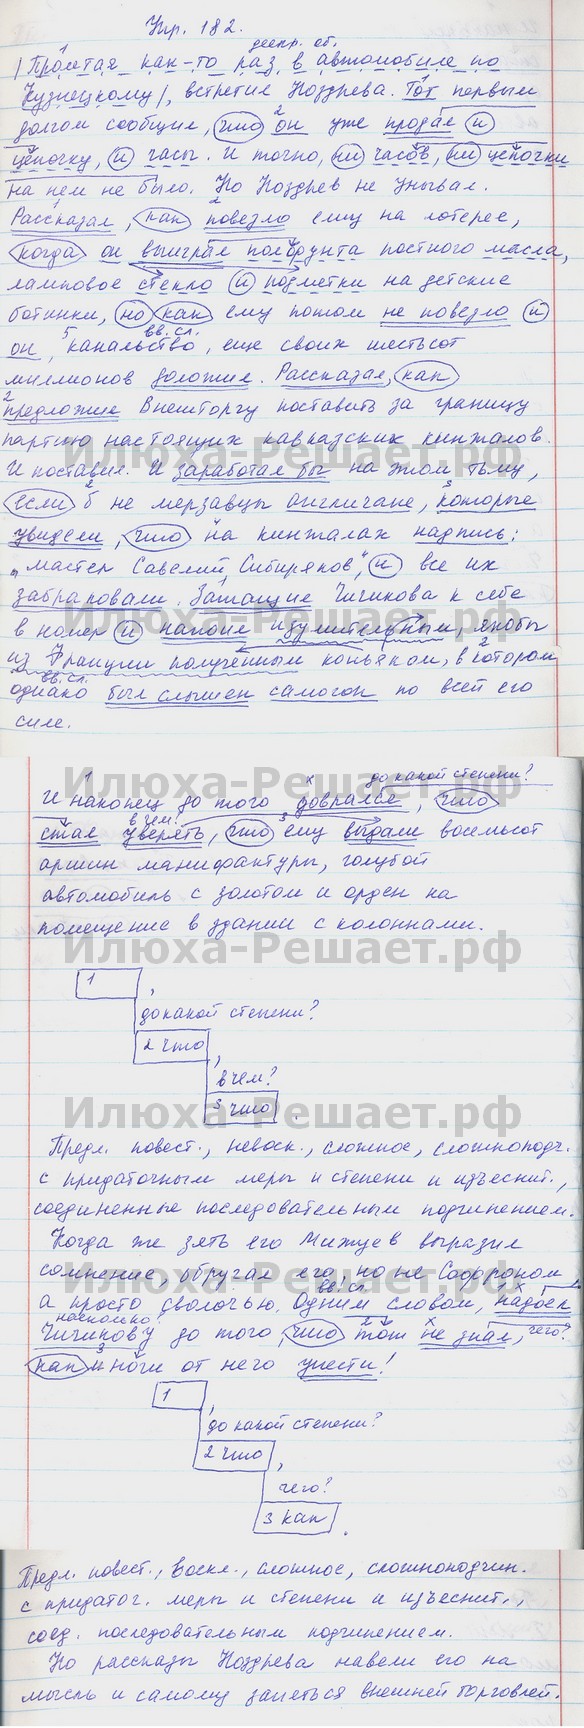 Упр. 182.
деепр. об.
Пролетая как-то раз в автомобиле по
Кузнецкому, встретил Ноздрева. Тот первым
долгом сообщил, что он уже продал и
цепочку, и часы. И точно, ни часов, ни цепочки
на нем не было. Но Ноздрев не унывал.
Рассказал, как повезло ему на лотерее,
когда он выиграл полфунта постного масла,
ламповое стекло и подметки на детские
ботинки, но как ему потом не повезло и
вв. сл.
он, канальство, еще своих шестьсот
миллионов доложил. Рассказал, как
предложил Внешторгу поставить за границу
партию настоящих кавказских кинжалов.
И поставил. И заработал бы на этом тьму,
если б не мерзавцы англичане, которые
увидели, что на кинжалах надпись:
"мастер Савелий Сибиряков", и все их
забраковали. Затащил Чичикова к себе
в номер и напоил изумительным, якобы
из Франции полученным коньяком, в котором
вв. сл.
однако был слышен самогон по всей его
силе.
Илюха-Решает.рф
до какой степени?
И наконец до того доврался, что
в чем?
стал уверять, что ему выдали восемьсот
аршин мануфактуры, голубой
автомобиль с золотом и орден на
помещение в здании с колоннами.
Илюха-Решает.рф
1 ,
до какой степени?
2 что ,
в чем?
3 что .
Илюха-Решает.рф
Предл. повест., невоск., сложное, сложноподч.
с придаточным меры и степени и изъяснит.,
соединенные последовательным подчинением.
Когда же зять его Мижуев выразил
сомнение, обругал его, но не Софроном,
вв. сл.
а просто сволочью. Одним словом, надоел
насколько?
Чичикову до того, что тот не знал, чего?
как и ноги от него унести!
1 ,
до какой степени?
2 что ,
чего?
3 как .
Предл. повест., воскл., сложное, сложноподчин.
с придаточ. меры и степени и изъяснит.,
соед. последовательным подчинением.
Но рассказы Ноздрева навели его на
мысль и самому заняться внешней торговлей.